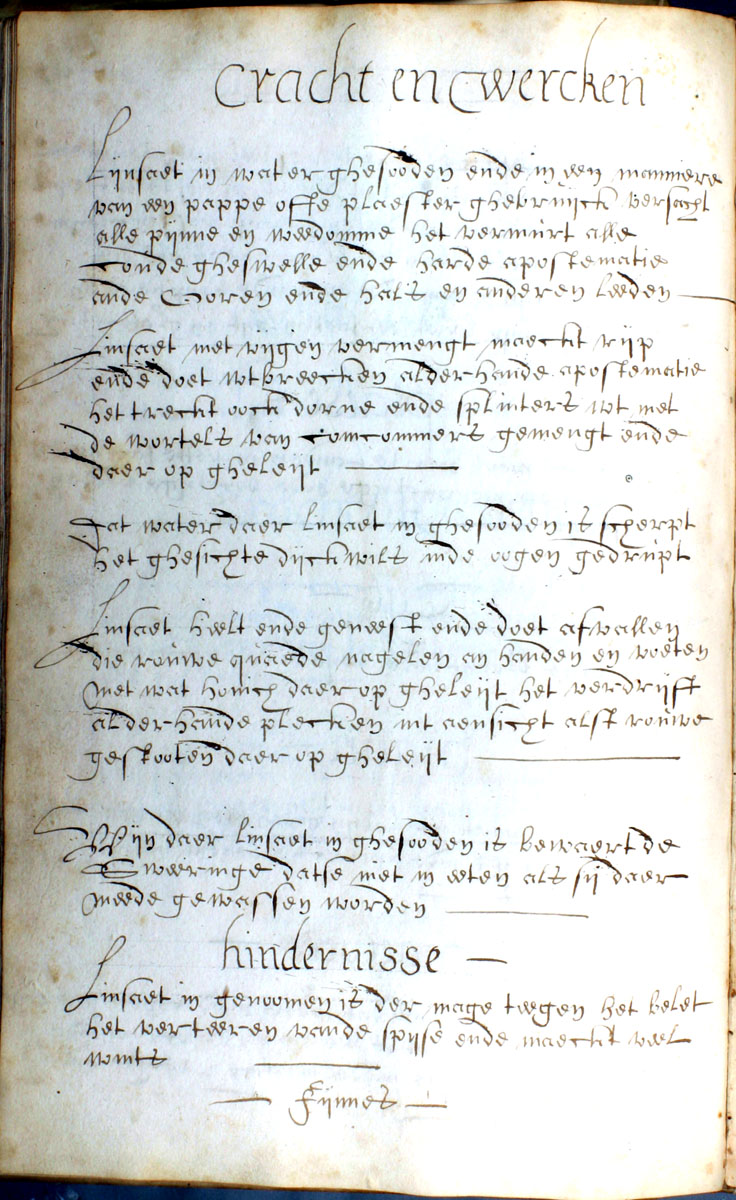 Cracht en wercken
Lijnsaet in water ghesooden ende in een manniere
van een pappe ofte plaester ghebruijckt versacht
alle pijnne en weedomme het vermurt alle
coude gheswelle ende harde apostematie
ande Ooren ende hals en anderen leeden
Linsaet met vijgen vermengt maeckt rijp
ende doet wtbreecken alderhande apostematie
het treckt oock dorne ende splinters wt met
de wortels van comcommers gemengt ende
daer op gheleijt
Dat water daer linsaet in ghesooden is scherpt
het ghesichte dijckwils inde oogen gedrupt
Linsaet heelt ende geneest ende doet afvallen
die rouwe quaede nagelen an handen en voeten
met wat honich daer op gheleijt het verdrijft
alderhande plecken int aensicht alst rouwe
gestooten daer op gheleijt
Wijn daer linsaet in ghesooden is bewaert de
Sweeringe datse niet in eeten als sij daer
meede gewassen worden
hindernisse
Linsaet in genoomen is der mage teegen het belet
het verteeren vande spijse ende maeckt veel
wints
Fijnnes